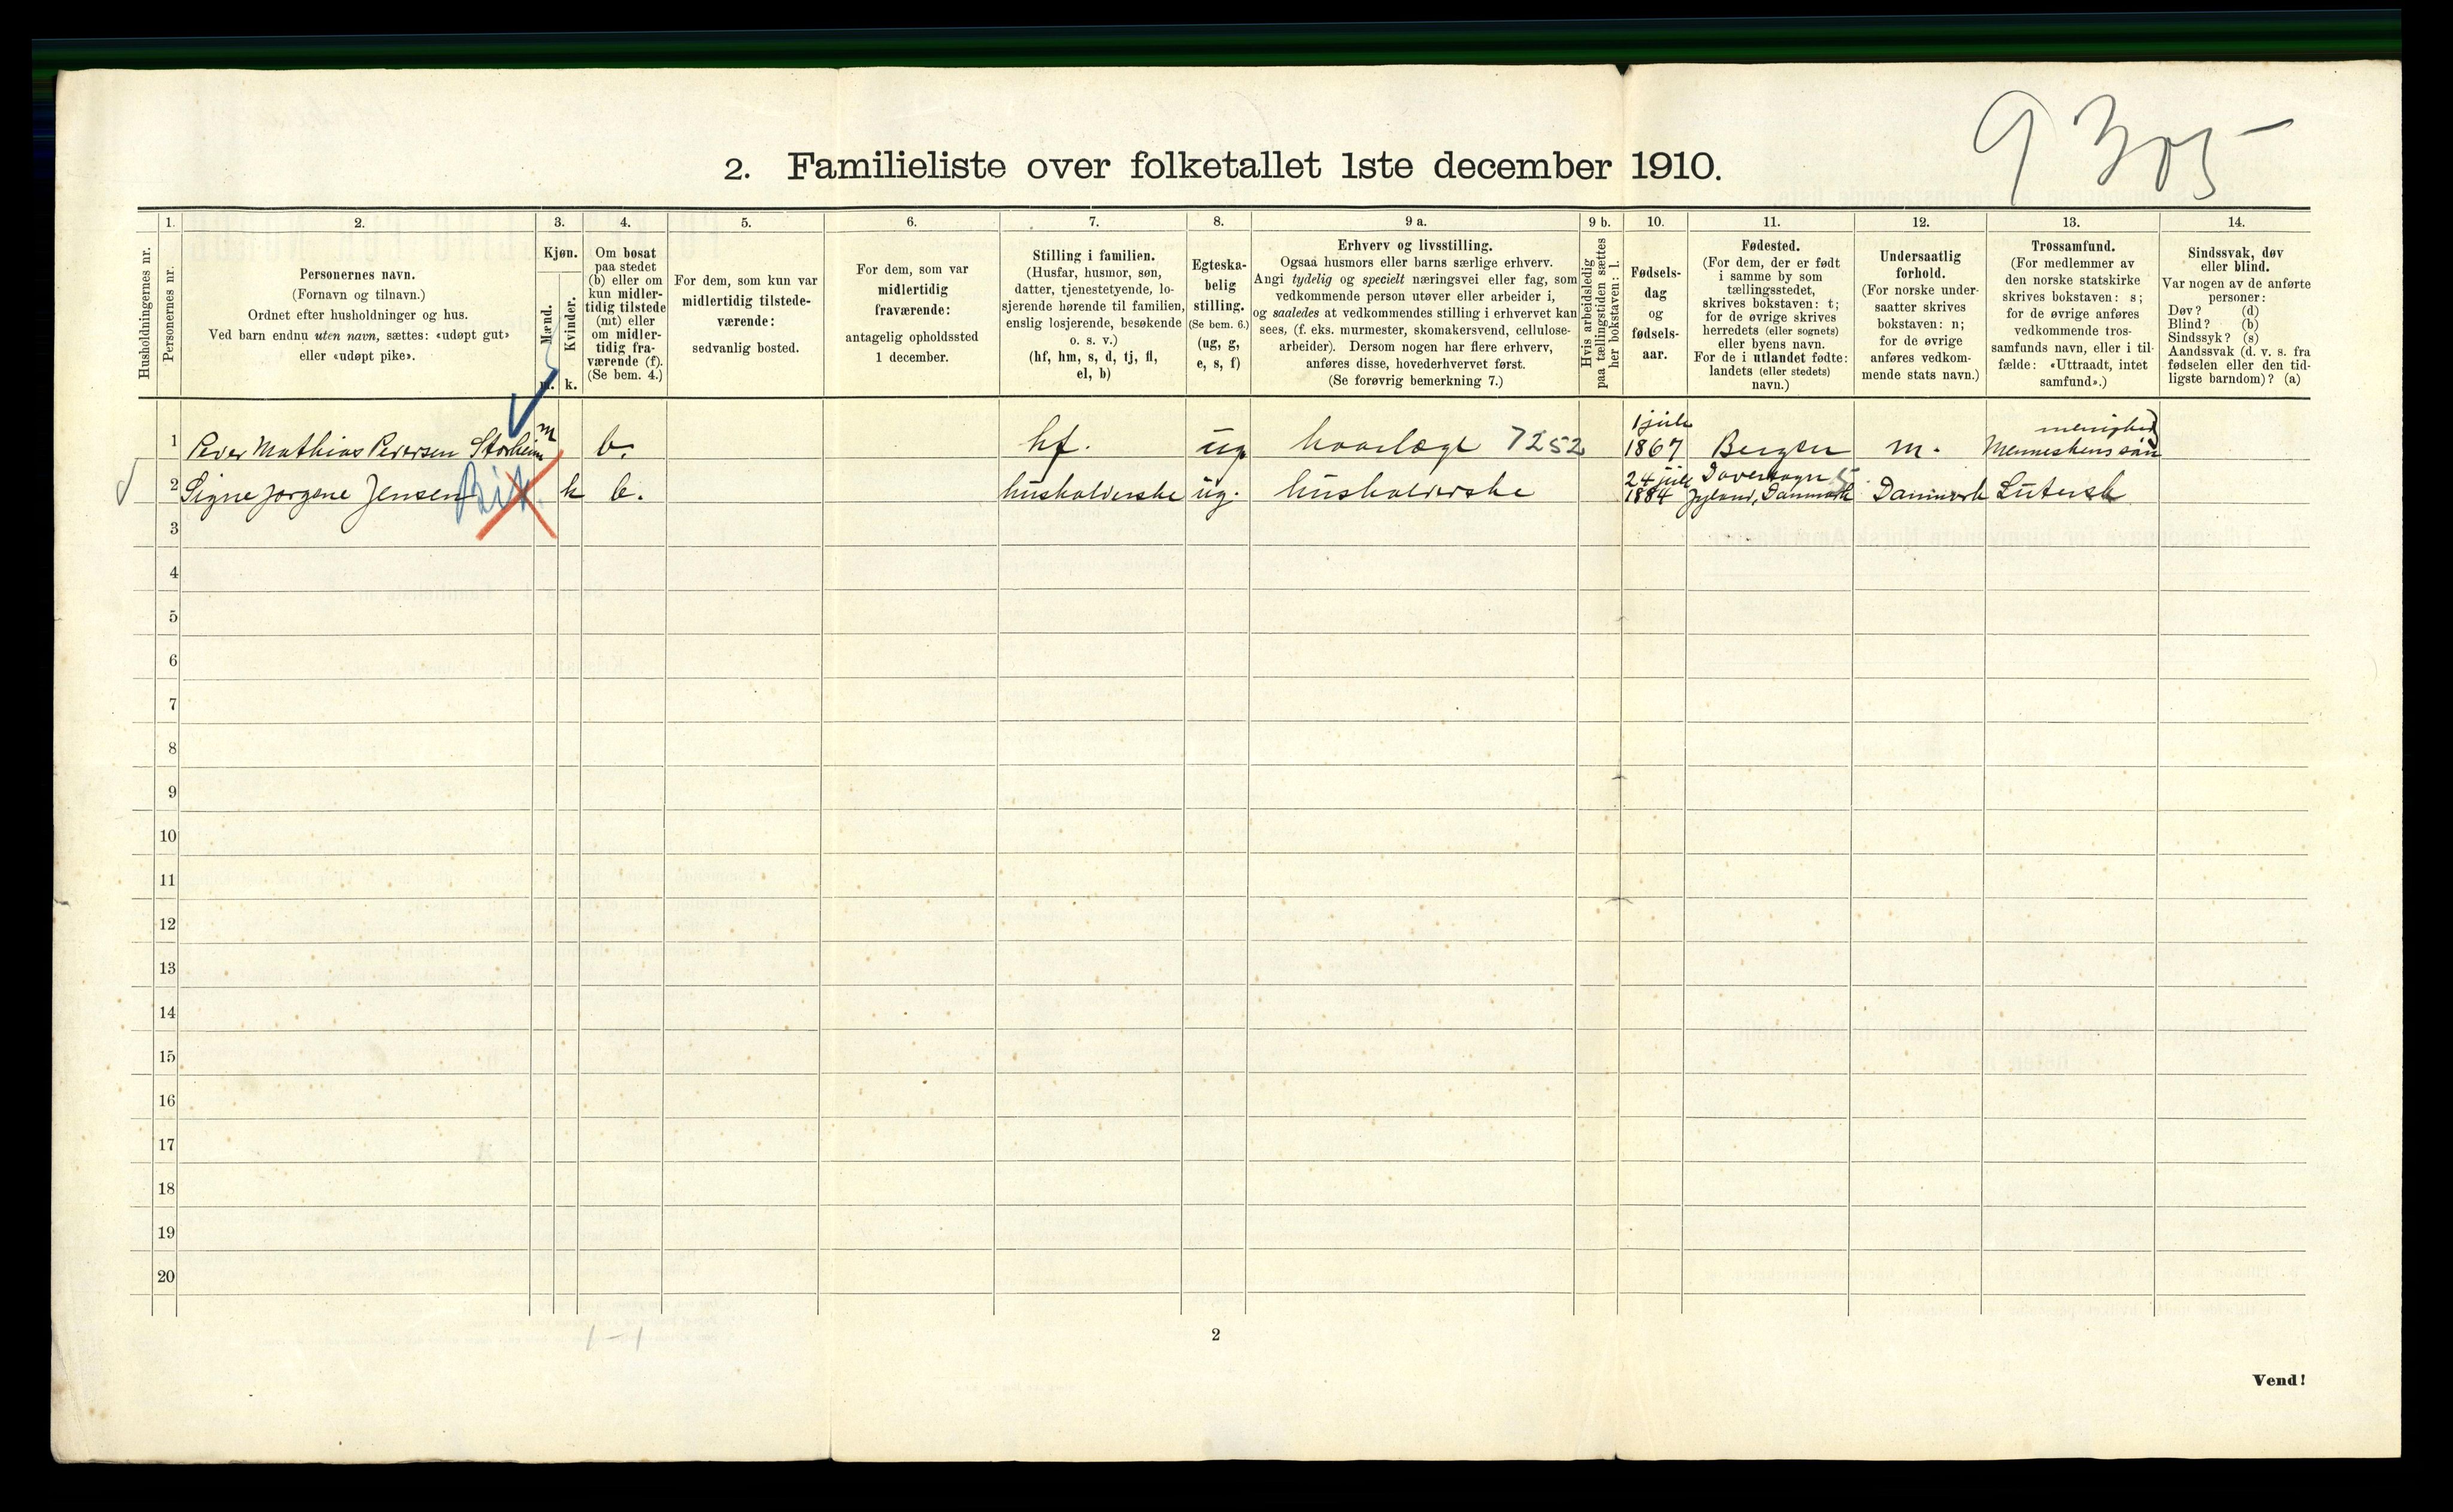 9305-
2. Familieliste over folketallet 1ste december 1910.
Husholdningernes nr.
1.
Personernes nr.
2.
Personernes navn.
(Fornavn og tilnavn.)
Ordnet efter husholdninger og hus.
Ved barn endnu uten navn, sættes: «udøpt gut»
eller «udøpt pike».
3.
Kjøn.
Mænd.
m.
Kvinder.
k.
4.
Om bosat
paa stedet
(b) eller om
kun midler-
tidig tilstede
(mt) eller
om midler-
tidig fra-
værende (f).
(Se bem. 4.)
5.
For dem, som kun var
midlertidig tilstede-
værende:
sedvanlig bosted.
6.
For dem, som var
midlertidig
fraværende:
antagelig opholdssted
1 december.
7.
Stilling i familien.
(Husfar, husmor, søn,
datter, tjenestetyende, lo-
sjerende hørende til familien,
enslig losjerende, besøkende
o. s. v.)
(hf, hm, s, d, tj, fl,
el, b)
8.
Egteska-
belig
stilling.
(Se bem. 6.)
(ug, g,
e, s, f)
9 a.
Erhverv og livsstilling.
Ogsaa husmors eller barns særlige erhverv.
Angi tydelig og specielt næringsvei eller fag, som
vedkommende person utøver eller arbeider i,
og saaledes at vedkommendes stilling i erhvervet kan
sees, (f. eks. murmester, skomakersvend, cellulose-
arbeider). Dersom nogen har flere erhverv,
anføres disse, hovederhvervet først.
(Se forøvrig bemerkning 7.)
9 b.
Hvis arbeidsledig
paa tællingstiden sættes
her bokstaven: l.
10.
Fødsels-
dag
og
fødsels-
aar.
11.
Fødested.
(For dem, der er født
i samme by som
tællingsstedet,
skrives bokstaven: t;
for de øvrige skrives
herredets (eller sognets)
eller byens navn.
For de i utlandet fødte:
landets (eller stedets)
navn.)
12.
Undersaatlig
forhold.
(For norske under-
saatter skrives
bokstaven: n;
for de øvrige
anføres vedkom-
mende stats navn.)
13.
Trossamfund.
(For medlemmer av
den norske statskirke
skrives bokstaven: s;
for de øvrige anføres
vedkommende tros-
samfunds navn, eller i til-
fælde: «Uttraadt, intet
samfund».)
14.
Sindssvak, døv
eller blind.
Var nogen av de anførte
personer:
Døv? (d)
Blind? (b)
Sindssyk? (s)
Aandssvak (d. v. s. fra
fødselen eller den tid-
ligste barndom)? (a)
1 Peder Mathias Pedersen Storheim m b. hf. ug. haarlæge 7252 1 juli 1867 Bergen n. Menneskens søn menighed
2 Signe Jørgene Jensen k b. husholderske ug. husholderske 24 juli 1884 Jyland, Danmark Danmark Lutersk
3
4
5
6
7
8
9
10
11
12
13
14
15
16
17
18
19
20
1-1
2
Vend!